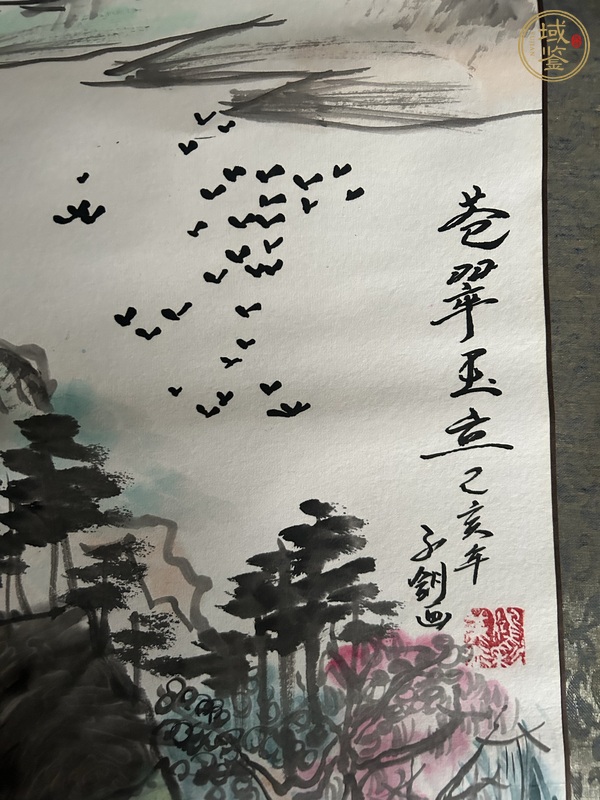 苍翠玉立己亥年
子剑画
域鉴